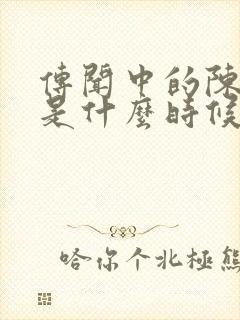 傳聞中的陳
是什麼時候
哈你个北極熊